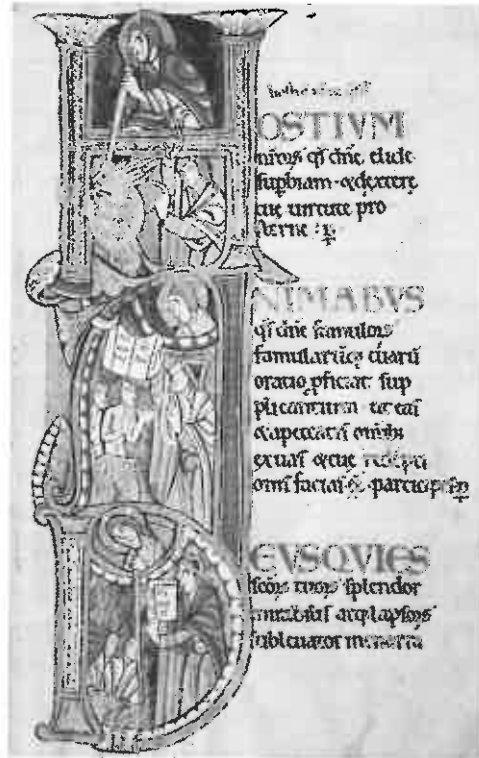 OSTIVM
nrorꝫ qs dne elide
supbiam · & dextere
tue uirtute pro
sterne : p̱
NIMABVS
qs dne famulorꝫ
famularūqꝫ tuarū
oratio pficiat sup
plicantium · ut eas
& a peccatis omībꝫ
exuas & tue
omī facias ēē participes p̱
EVSQVIES
scōꝝ tuoꝝ splendor
mirabilis atqꝫ lapsoꝝ
subleuator